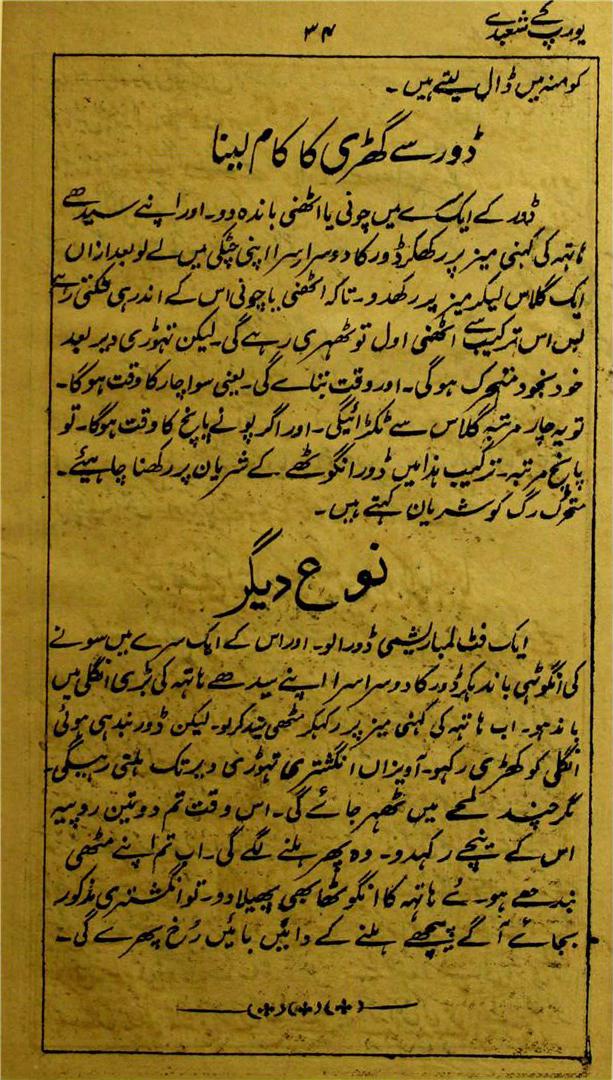 یورپ کے شعبدے
۳۴
کو منہ میں ڈال لیتے ہیں۔
ڈور سے گھڑی کا کام لینا
ڈور کے ایک سرے میں چونی یا اٹھنی باندھ دو۔ اور اپنے سیدھے
ہاتہہ کی کہنی میز پر رکھکر ڈور کا دوسرا سرا اپنی چٹکی میں لے لو بعد ازاں
ایک گلاس لیکر میز پر رکھدو۔ تاکہ اٹھنی یا چونی اس کے اندر ہی لٹکتی رہے
بس اس ترکیب سے اٹھنی اول تو ٹھہری رہے گی۔ لیکن تہوڑی دیر بعد
خود بخود متحرک ہو گی۔ اور وقت بتائے گی۔ یعنی سوا چار کا وقت ہو گا۔
تو یہ چار مرتبہ گلاس سے ٹکرائیگی۔ اور اگر پونے پانچ کا وقت ہو گا۔ تو
پانچ مرتبہ۔ ترکیب ہذا میں ڈور انگوٹھے کے شریان پر رکھنا چاہیئے۔
متحرک رگ کو شریان کہتے ہیں۔
نوع دیگر
ایک فٹ لمبا ریشمی ڈورا لو۔ اور اس کے ایک سرے میں سونے
کی انگوٹہی باندہکر ڈور کا دوسرا سرا اپنے سیدھے ہاتہہ کی بڑی انگلی میں
باندہو۔ اب ہاتہہ کی کہنی میز پر رکہکر مٹھی بند کر لو۔ لیکن ڈور بندہی ہوئی
انگلی کو کھڑی رکہو۔ آویزاں انگشتری تہوڑی دیر تک ہلتی رہیگی۔
مگر چند لمحے میں ٹھہر جائے گی۔ اس وقت تم دو تین روپیہ
اس کے نیچے رکہدو۔ وہ پھر ہلنے لگے گی۔ اب تم اپنے مٹھی
بندھے ہوئے ہاتہہ کا انگوٹھا بھی پھیلا دو۔ تو انگشتری مذکور
بجائے آگے پیچھے ہلنے کے دائیں بائیں رُخ پھرے گی۔